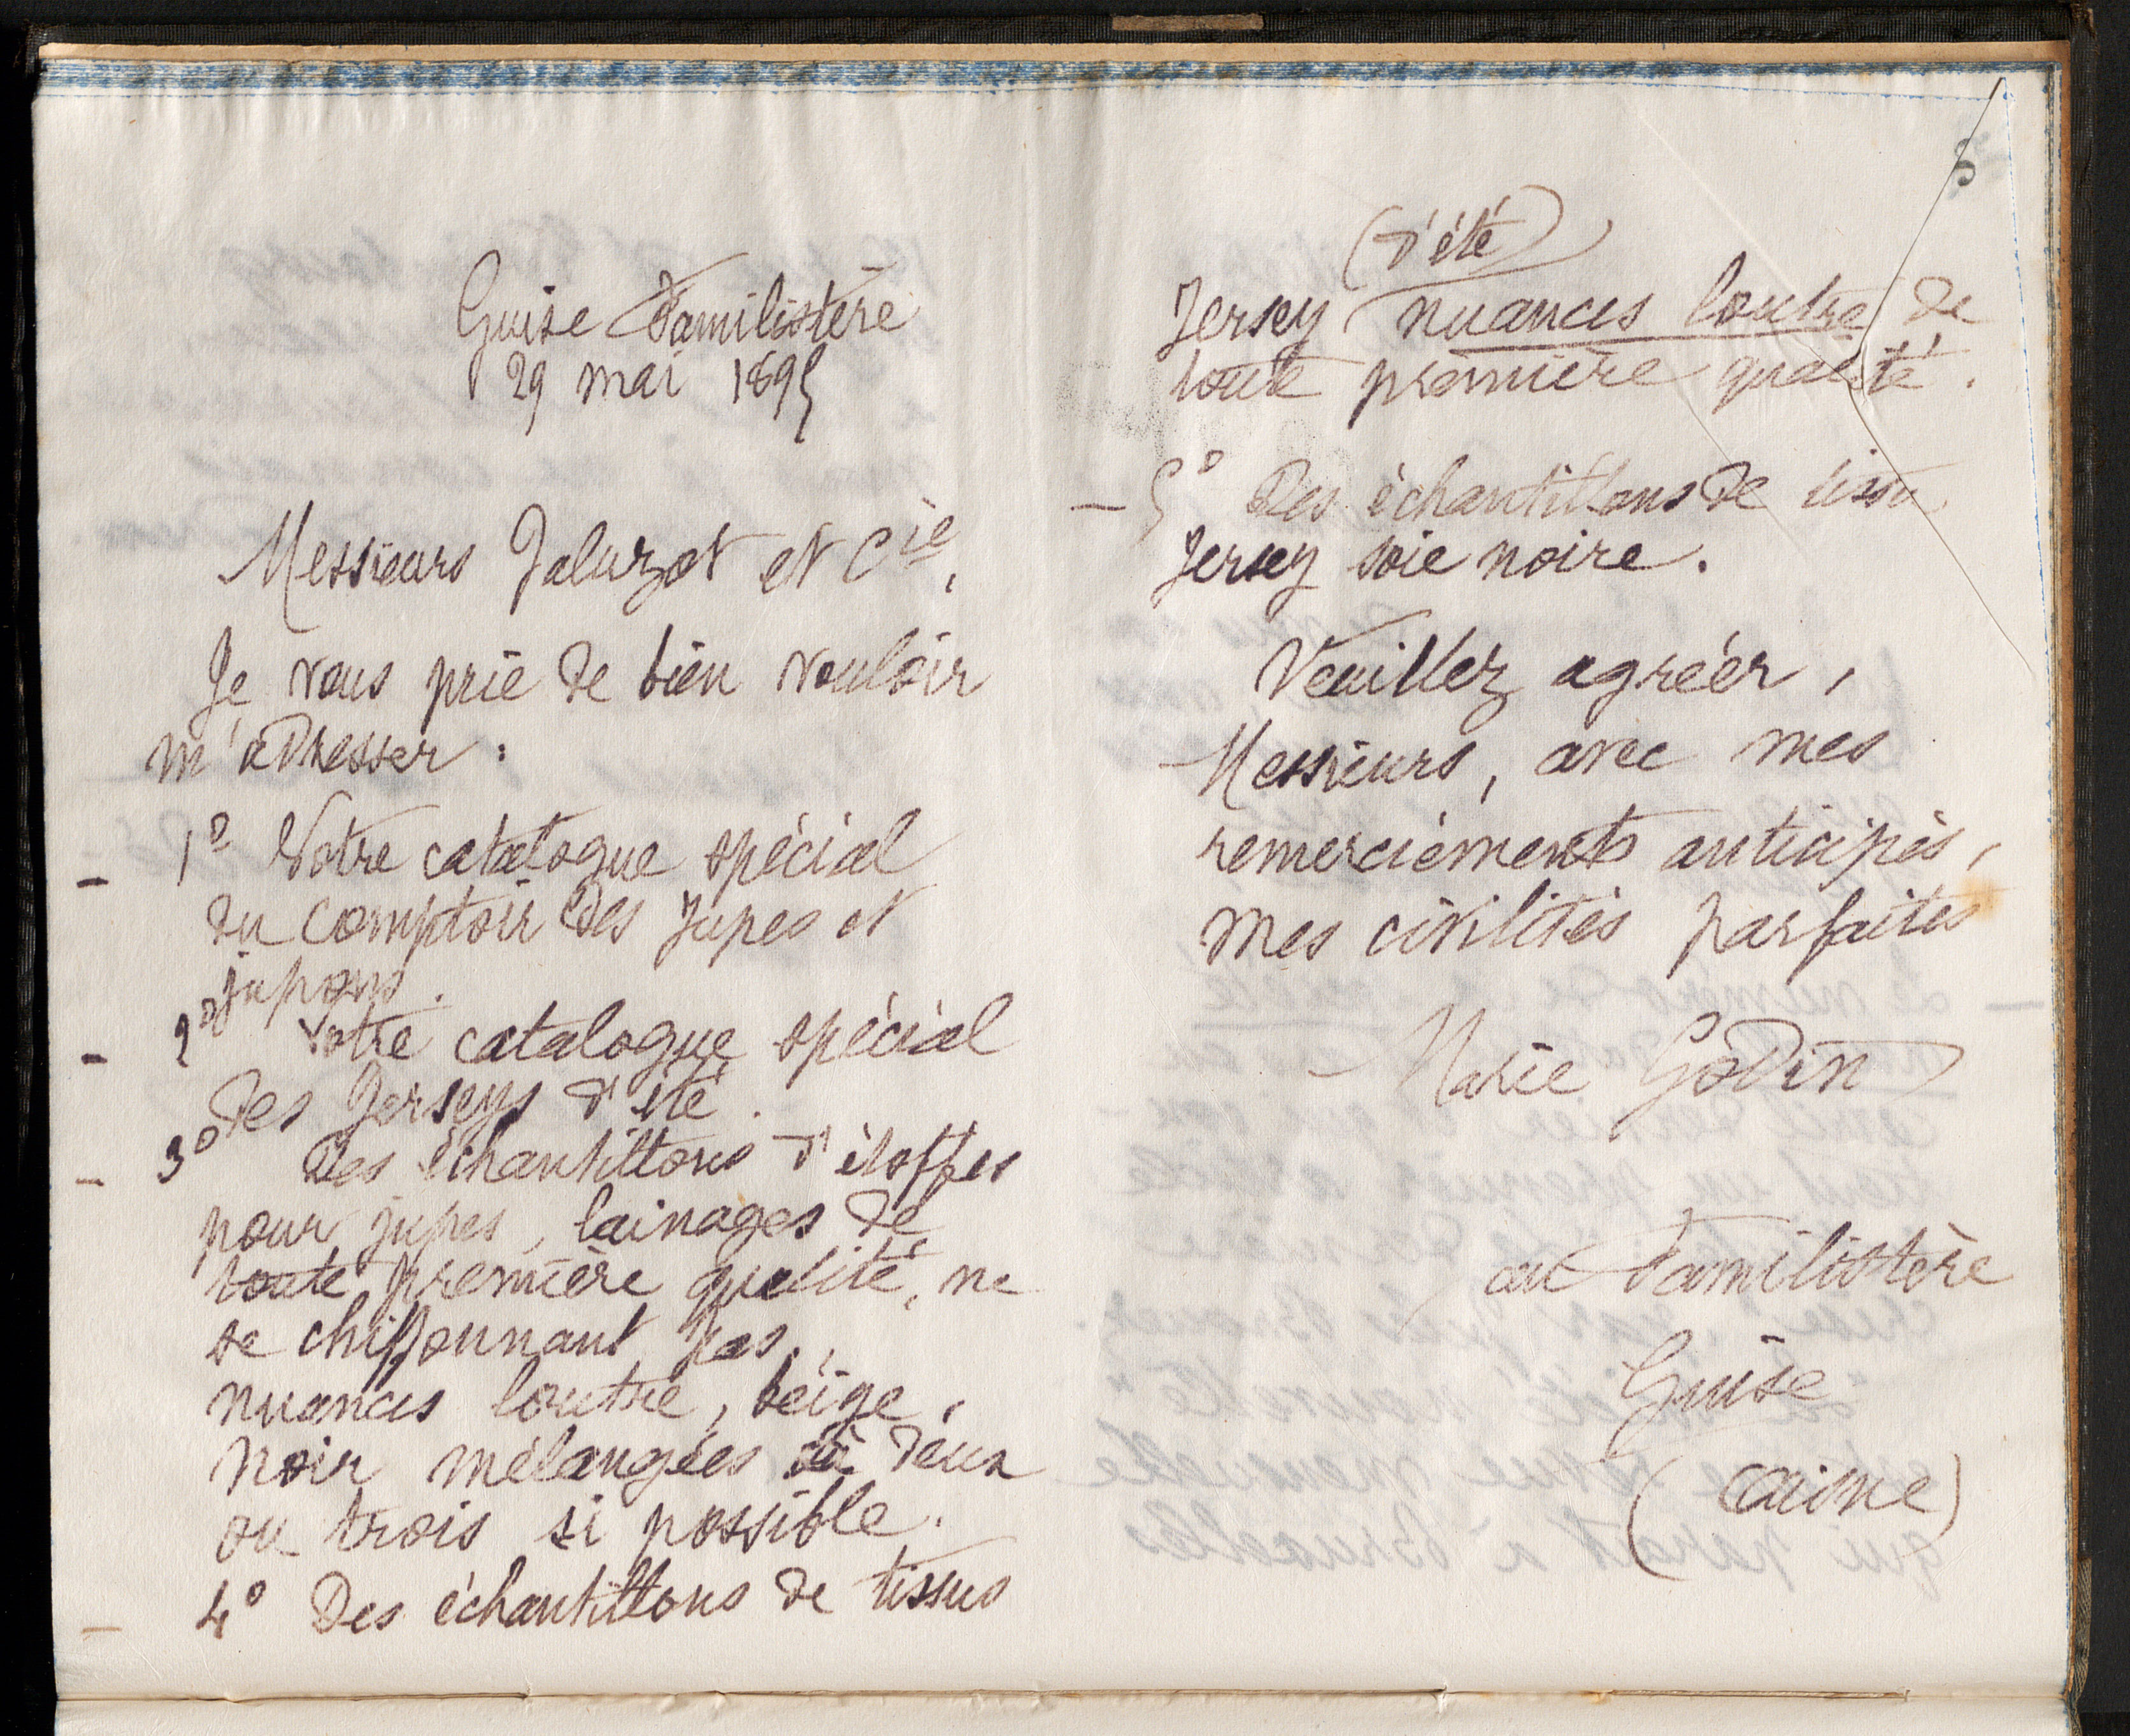 Guise Familistère
29 mai 1895
Messieurs Jaluzot et Cie,
Je vous prie de bien vouloir
m'adresser :
– 1° Votre catalogue spécial
du comptoir des Jupes et
jupons.
– 2° Votre catalogue spécial
des Jerseys d'été.
– 3° Des échantillons d'étoffes
pour jupes, lainages de
toute première qualité, ne
se chiffonnant pas,
nuances loutre, beige,
noir mélangées à deux
ou trois si possible.
– 4° Des échantillons de tissus
(d'été)
Jersey nuances loutre de
toute première qualité.
– 5° Des échantillons de tissu
Jersey soie noire.
Veuillez agréer,
Messieurs, avec mes
remerciements anticipés,
mes civilités parfaites
Marie Godin
au Familistère
Guise
(Aisne)